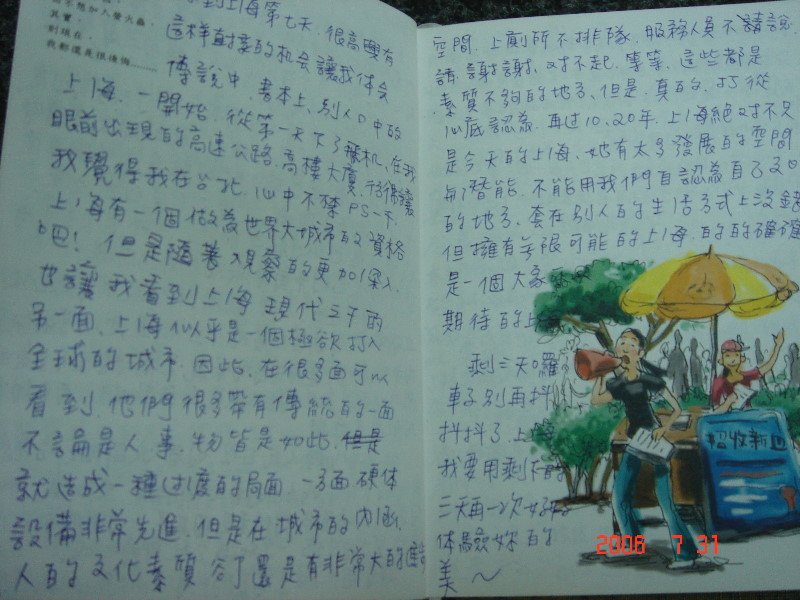 不想加入螢火蟲,
其實,
到現在,
我都還是很後悔……
到上海第七天,很高興有
這样對的机会讓我体会
傳說中,書本上,別人口中的
上海,一開始,從第一天下了機,在我
眼前出現的高速公路,高樓大廈,彷彿讓
我覺得我在台北,心中不禁PS一下,
上海有一個做為世界大城市的資格
吧!但是隨著觀察的更加深入,
也讓我看到上海現代之下的
另一面,上海似乎是一個極欲打入
全球的城市,因此,在很多面可以
看到,他們很多帶有傳統的一面
不論是人,事,物皆是如此,但是
就造成一種过度的局面,一方面,硬体
設備非常先進,但是在城市的內涵,
人的文化素質,還是有非常大的
空間,上廁所不排隊,服務人員不講說
請,謝謝,对不起,等等,這些都是
素質不夠的地方,但是,真的,打從
心底認為,再过10、20年,上海絕对不只
是今天的上海,她有太多發展的空間
和潛能,不能用我們自認為自己
的地方,套在別人的生活方式上,沒錯
但擁有無限可能的上海,的的確確
是一個大家
期待的上
剩三天囉
車子別再抖
抖抖了,上
我要用剩下的
三天再一次好好的
体驗妳的
美~
招收新
2006 7 31